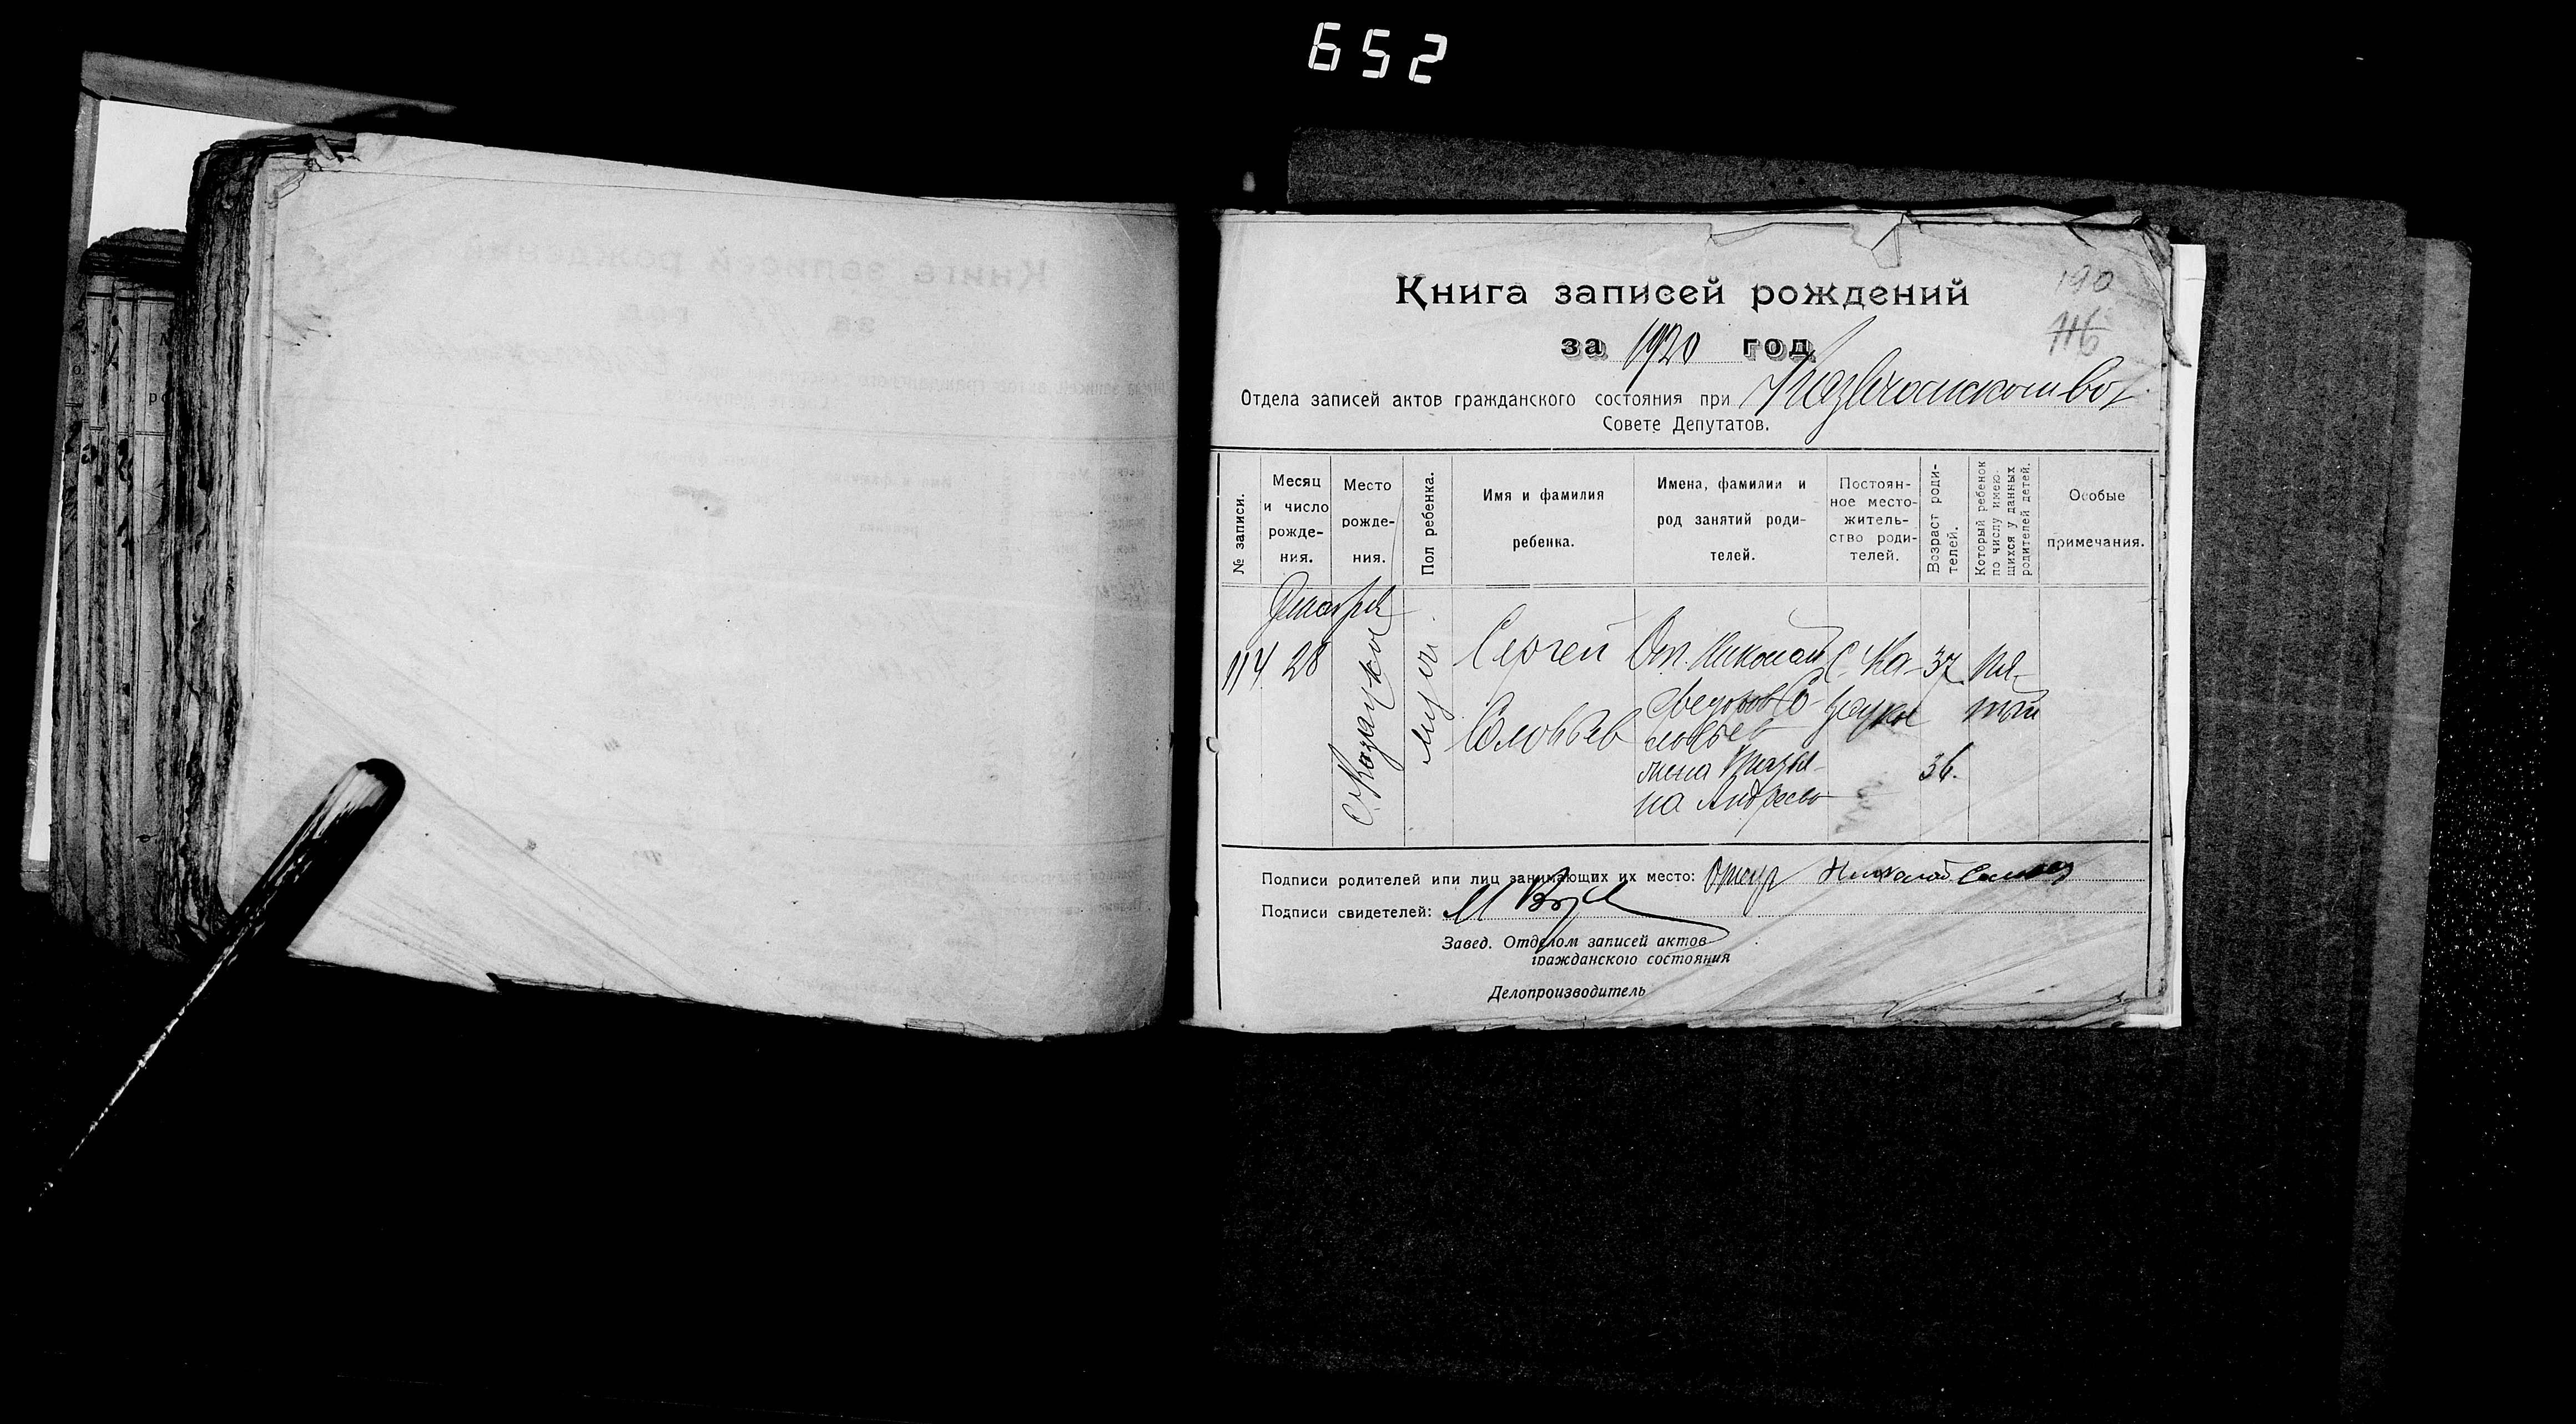 652
190
116
Книга записей рождений
за 1920 год
Отдела записей актов гражданского состояния при
Совете Депутатов.
№ записи.
Месяц и число рожде-ния.
Место рожде-ния.
Пол ребенка.
Имя и фамилия ребенка.
Имена, фамилии и род занятий роди-телей.
Постоян-ное место-житель-ство роди-телей.
Возраст роди-телей.
Который ребенок по числу имею-щихся у данных родителей детей.
Особые примечания.
Декабря
114 28
муж.
Сергей
Соловьев
От. Николай
Федоров Со-
ловьев
жена
на Андреев
С. Ка-
зацкое
37
36.
пя-
тый
Подписи родителей или лиц занимающих их место: Николай
Подписи свидетелей:
Завед. Отделом записей актов
гражданского состояния
Делопроизводитель